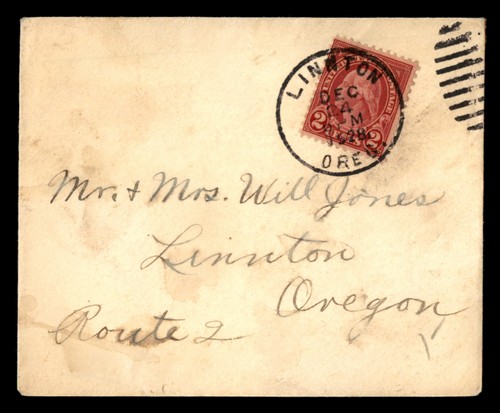 LINNTON
DEC
4
M
1928
OREG.
2 2
Mr. & Mrs. Will Jones
Linnton
Oregon
Route 2